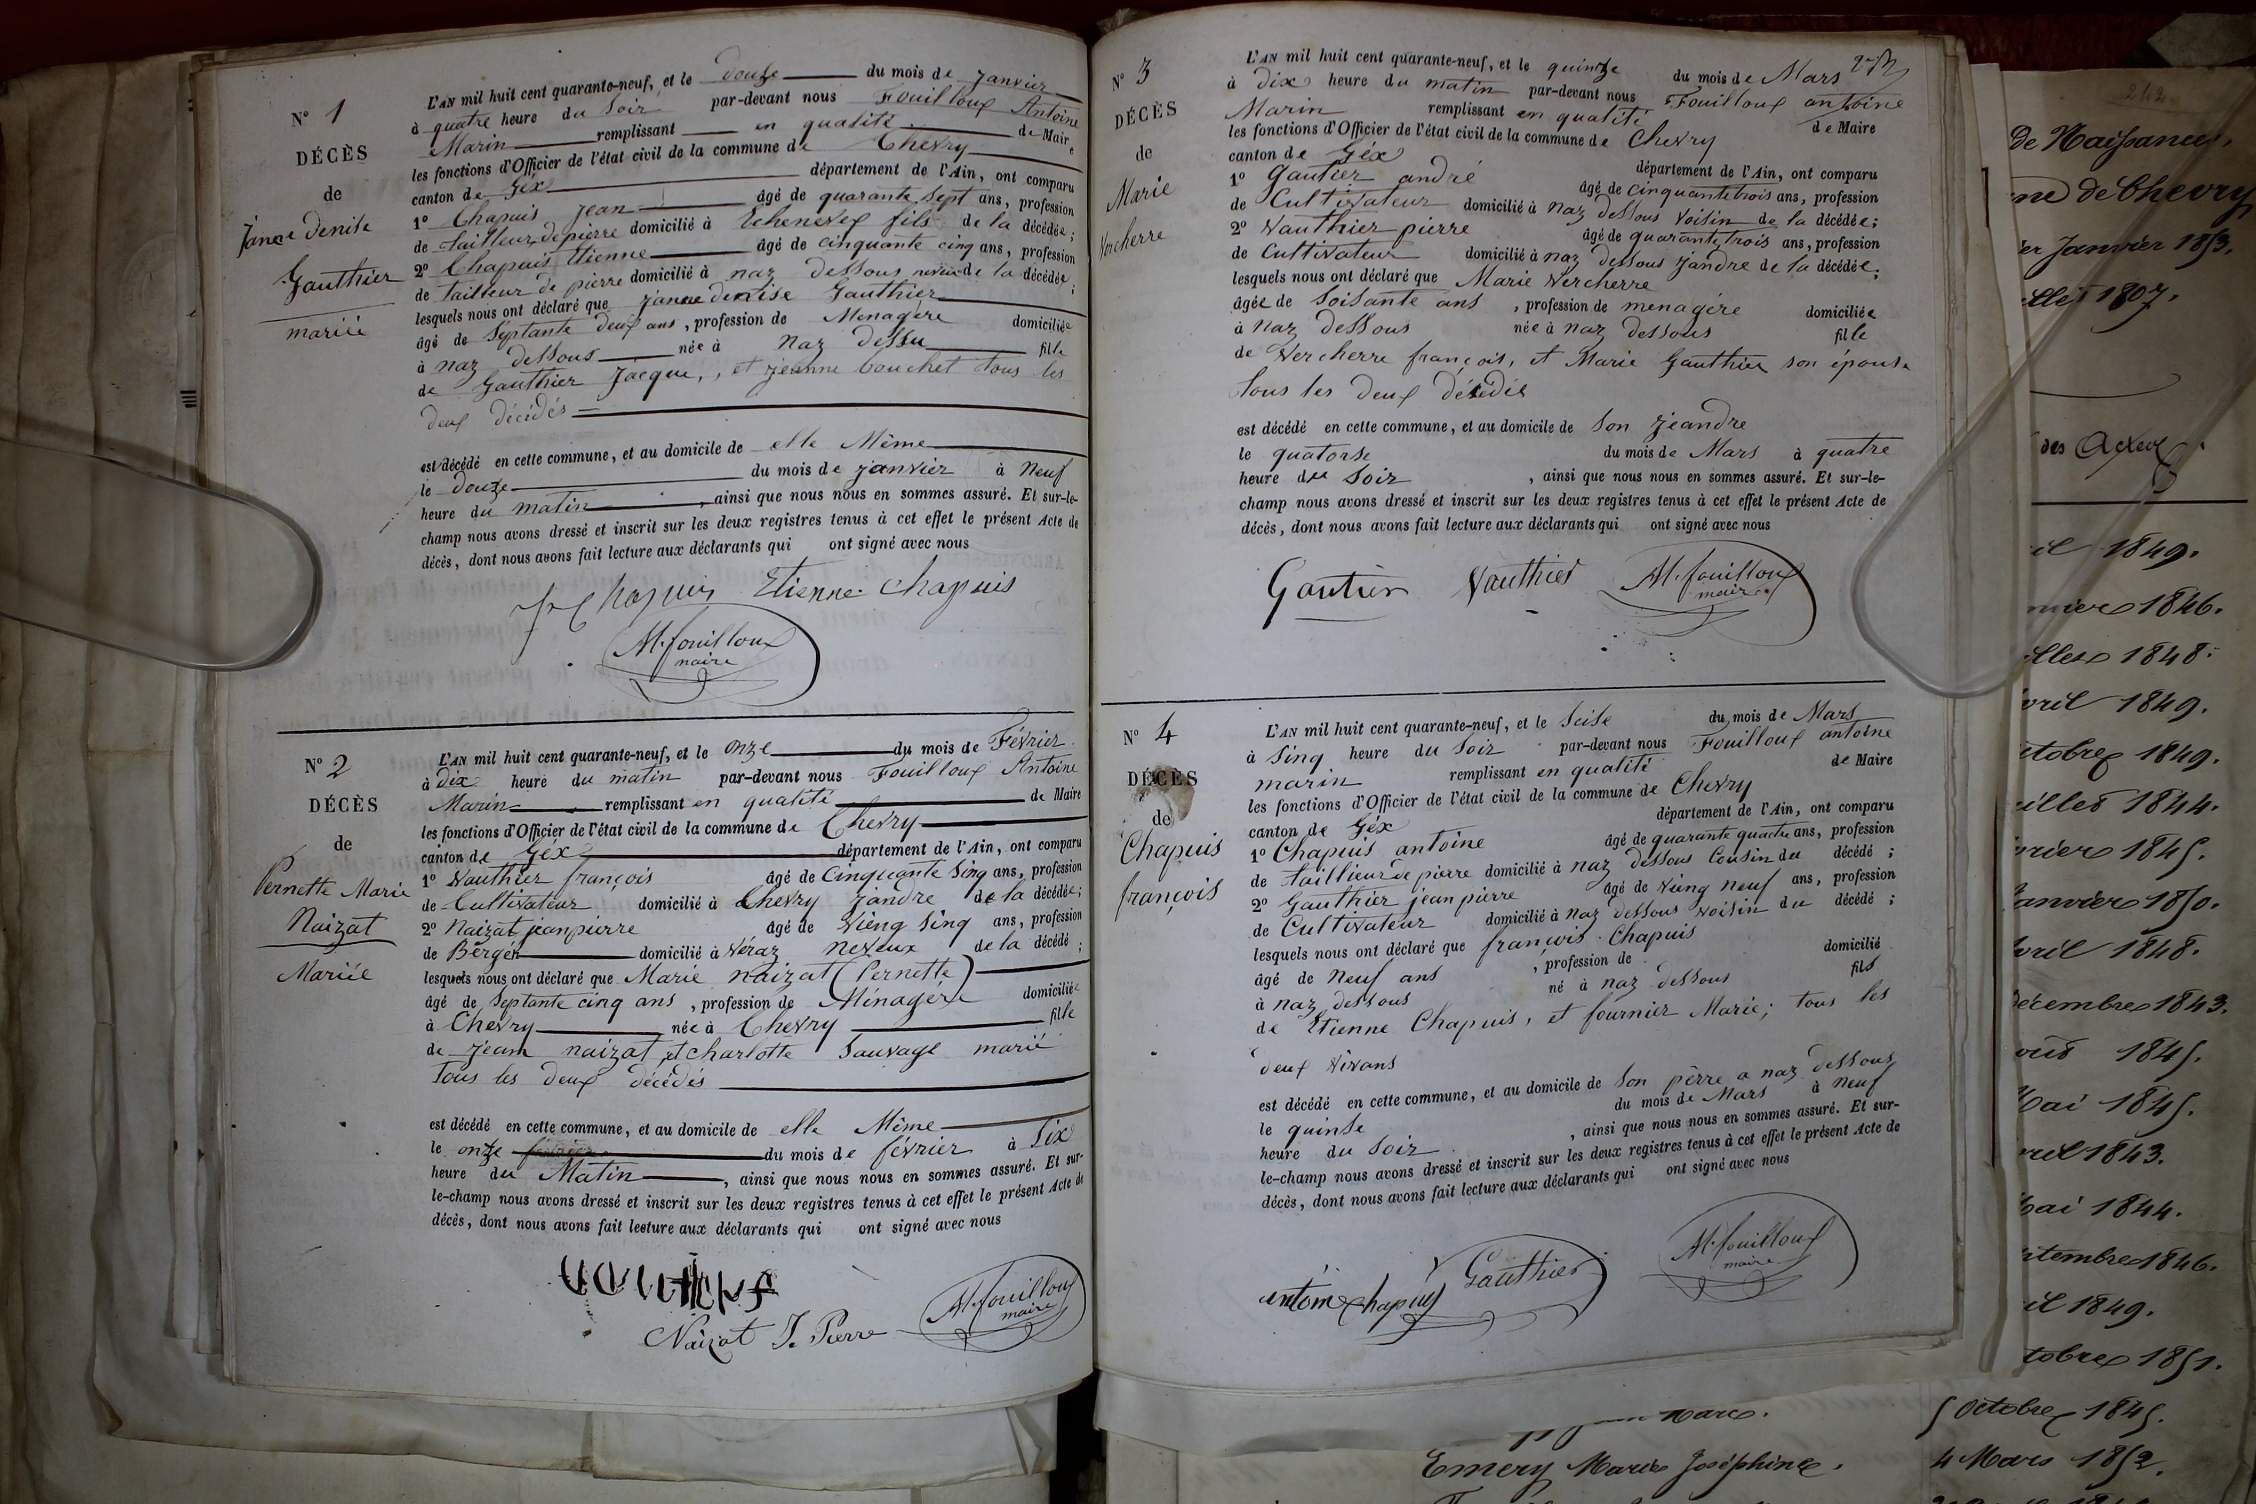 N° 1
DÉCÈS
de
Janne denise
Gauthier
mariée
L'AN mil huit cent quarante-neuf, et le douze du mois de janvier
à quatre heure du Soir par-devant nous Fouilloux Antoine
Marin remplissant en qualité de Maire
les fonctions d'Officier de l'état civil de la commune de Chevry
canton de Géx département de l'Ain, ont comparu
1° Chapuis jean âgé de quarante sept ans, profession
de tailleur de pierre domicilié à Echenevex fils de la décédée;
2° Chapuis Etienne âgé de cinquante cinq ans, profession
de tailleur de pierre domicilié à naz dessous neveu de la décédée;
lesquels nous ont déclaré que janne denise Gauthier
âgé de Séptante deux ans, profession de Menagère domiciliée
à naz dessous née à naz dessu fille
de Gauthier jacque, et jeanne bouchet tous les
deux décidés
est décédé en cette commune, et au domicile de elle Même
le douze du mois de janvier à Neuf
heure du matin, ainsi que nous nous en sommes assuré. Et sur-le-
champ nous avons dressé et inscrit sur les deux registres tenus à cet effet le présent Acte de
décès, dont nous avons fait lecture aux déclarants qui ont signé avec nous
J Chapuis Etienne Chapuis
AM. fouilloux
maire
N° 2
DÉCÈS
de
Pernette Marie
Naizat
Mariée
L'AN mil huit cent quarante-neuf, et le onze du mois de Février
à dix heure du matin par-devant nous Fouilloux Antoine
Marin remplissant en qualité de Maire
les fonctions d'Officier de l'état civil de la commune de Chevry
canton de Géx département de l'Ain, ont comparu
1° Vauthier françois âgé de Cinquante Sinq ans, profession
de Cultivateur domicilié à Chevry jandre de la décédée;
2° Naizat jeanpierre âgé de Vieng Sinq ans, profession
de Bérgér domicilié à Véraz neveux de la décédé;
lesquels nous ont déclaré que Marie naizat (Pernette)
âgé de Séptante cinq ans, profession de Ménagére domiciliée
à Chevry née à Chevry fille
de jean naizat et charlotte Sauvage marié
tous les deux décédés
est décédé en cette commune, et au domicile de elle Même
le onze du mois de février à Six
heure du Matin, ainsi que nous nous en sommes assuré. Et sur-
le-champ nous avons dressé et inscrit sur les deux registres tenus à cet effet le présent Acte de
décès, dont nous avons fait lecture aux déclarants qui ont signé avec nous
Naizat J. Pierre
AM. fouilloux
maire
N° 3
DÉCÈS
de
Marie
Vercherre
L'AN mil huit cent quarante-neuf, et le quinze du mois de Mars
à dix heure du matin par-devant nous Fouilloux antoine
Marin remplissant en qualité de Maire
les fonctions d'Officier de l'état civil de la commune de Chevry
canton de Géx département de l'Ain, ont comparu
1° Gautier andré âgé de cinquantetrois ans, profession
de Cultivateur domicilié à naz dessous voisin de la décédée;
2° Vauthier pierre âgé de quarantetrois ans, profession
de Cultivateur domicilié à naz dessous jandre de la décédée;
lesquels nous ont déclaré que Marie Vercherre
âgée de Soisante ans, profession de menagére domiciliée
à naz dessous née à naz dessous fille
de Vercherre françois, et Marie Gauthier son épouse
tous les deux décédés
est décédé en cette commune, et au domicile de son jeandre
le quatorse du mois de Mars à quatre
heure du Soir, ainsi que nous nous en sommes assuré. Et sur-le-
champ nous avons dressé et inscrit sur les deux registres tenus à cet effet le présent Acte de
décès, dont nous avons fait lecture aux déclarants qui ont signé avec nous
Gautier Vauthier AM. fouilloux
maire
N° 4
DÉCÈS
de
Chapuis
françois
L'AN mil huit cent quarante-neuf, et le Seise du mois de Mars
à Sinq heure du Soir par-devant nous Fouilloux antoine
marin remplissant en qualité de Maire
les fonctions d'Officier de l'état civil de la commune de Chevry
canton de Géx département de l'Ain, ont comparu
1° Chapuis antoine âgé de quarante quatre ans, profession
de taillieur de pierre domicilié à naz dessous Cousin du décédé;
2° Gauthier jean pierre âgé de Vieng neuf ans, profession
de Cultivateur domicilié à naz dessous voisin du décédé;
lesquels nous ont déclaré que françois Chapuis
âgé de neuf ans, profession de domicilié
à naz dessous né à naz dessous fils
de Etienne Chapuis, et fournier Marie; tous les
deux vivans
est décédé en cette commune, et au domicile de Son pérre a naz dessous
le quinse du mois de Mars à neuf
heure du Soir, ainsi que nous nous en sommes assuré. Et sur-
le-champ nous avons dressé et inscrit sur les deux registres tenus à cet effet le présent Acte de
décès, dont nous avons fait lecture aux déclarants qui ont signé avec nous
antoine chapuis Gauthier AM. fouilloux
maire
242
de Naissances,
de Chevry
Janvier 1853.
1807.
des Actes
1849.
1846.
1848.
1849.
1849.
1844.
1845.
Janvier 1850.
1848.
Décembre 1843.
1845.
Mai 1845.
1843.
Mai 1844.
1846.
1849.
1851.
5 Octobre 1845.
Emery Marie Joséphine. 4 Mars 1852.